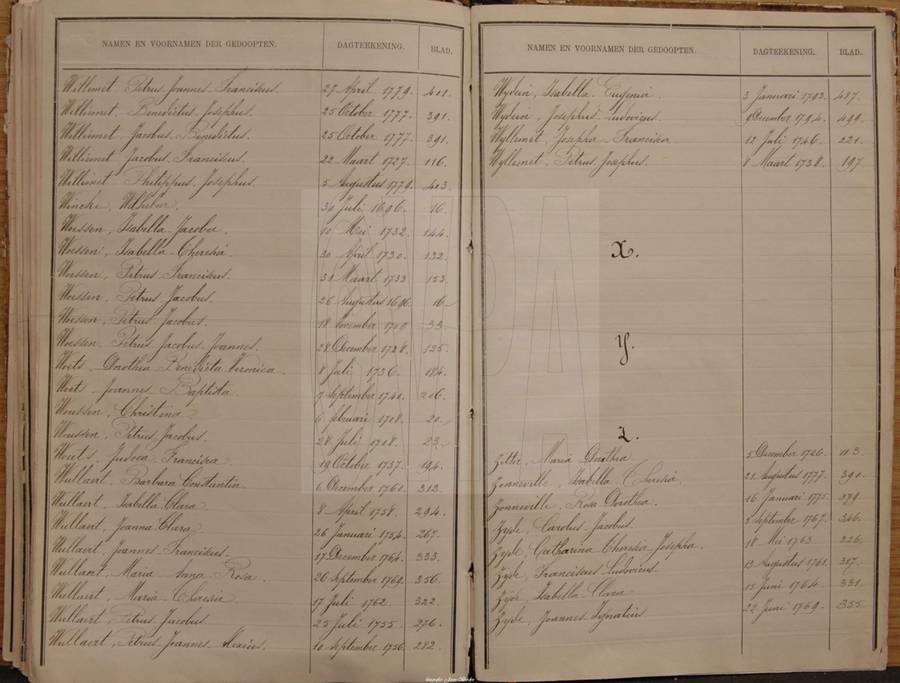 NAMEN EN VOORNAMEN DER GEDOOPTEN. DAGTEEKENING. BLAD.
Willemet Petrus Joannes Franciscus. 27 April 1779. 401.
Willemet. Benedictus Josephus. 25 October 1777. 391.
Willemet Jacobus Benedictus. 25 October 1777. 391.
Willemet Jacobus Franciscus. 22 Maart 1727. 116.
Willemet Philippus Josephus. 5 Augustus 1779. 403.
Wincke, Wilhelm. 30 Juli 1696. 16.
Woessen, Isabella Jacoba. 10 Mei 1732. 144.
Woessen, Isabella Theresia 30 April 1730. 132.
Woessen, Petrus Franciscus. 31 Maart 1733 153.
Woessen, Petrus Jacobus. 26 Augustus 1696. 16
Woessen, Petrus Jacobus. 18 November 1710 33.
Woessen Petrus Jacobus Joannes. 28 December 1728. 125.
Woets, Dorothea Benedicta Veronica. 8 Juli 1736. 184.
Woets, Joannes Baptista. 7 September 1740. 206.
Woussen, Christina 6 februari 1708. 20.
Woussen, Petrus Jacobus. 28 Juli 1708. 23.
Wouts, Judoca Francisca 19 October 1737. 194.
Wullaert, Barbara Constantia 6 December 1760. 313.
Wullaert, Isabella Clara 8 April 1758. 294.
Wullaert, Joanna Clara 26 Januari 1754. 267.
Wullaert, Joannes Franciscus. 17 December 1764. 333.
Wullaert, Maria Anna Rosa. 26 September 1768. 356.
Wullaert, Maria Theresia 17 Juli 1762. 322.
Wullaert, Petrus Jacobus. 25 Juli 1755. 276.
Wullaert, Petrus Joannes 10 September 1756 282.
NAMEN EN VOORNAMEN DER GEDOOPTEN. DAGTEEKENING. BLAD.
Wydein, Isabella Eugenia. 3 Januari 1793. 487.
Wydein, Josephus Ludovicus. December 1794. 499.
Wyllemet, Josepha Francisca 12 Juli 1746. 221.
Wyllemet, Petrus Josephus. 8 Maart 1738. 197.
X.
Y.
Z.
Maria Dorothea 5 December 1726. 113.
Zonneville, Isabella Theresia 21 Augustus 1777. 390.
Zonneville, Rosa Dorothea. 16 Januari 1775. 379.
Zyde, Carolus Jacobus. September 1767. 346.
Zyde, Catharina Theresia Josepha. 18 Mei 1763. 326.
Zyde, Franciscus Ludovicus 13 Augustus 1761. 317.
Zyde, Isabella Clara 15 Juni 1764. 331.
Zyde, Joannes Ignatius 22 Juni 1769. 355.